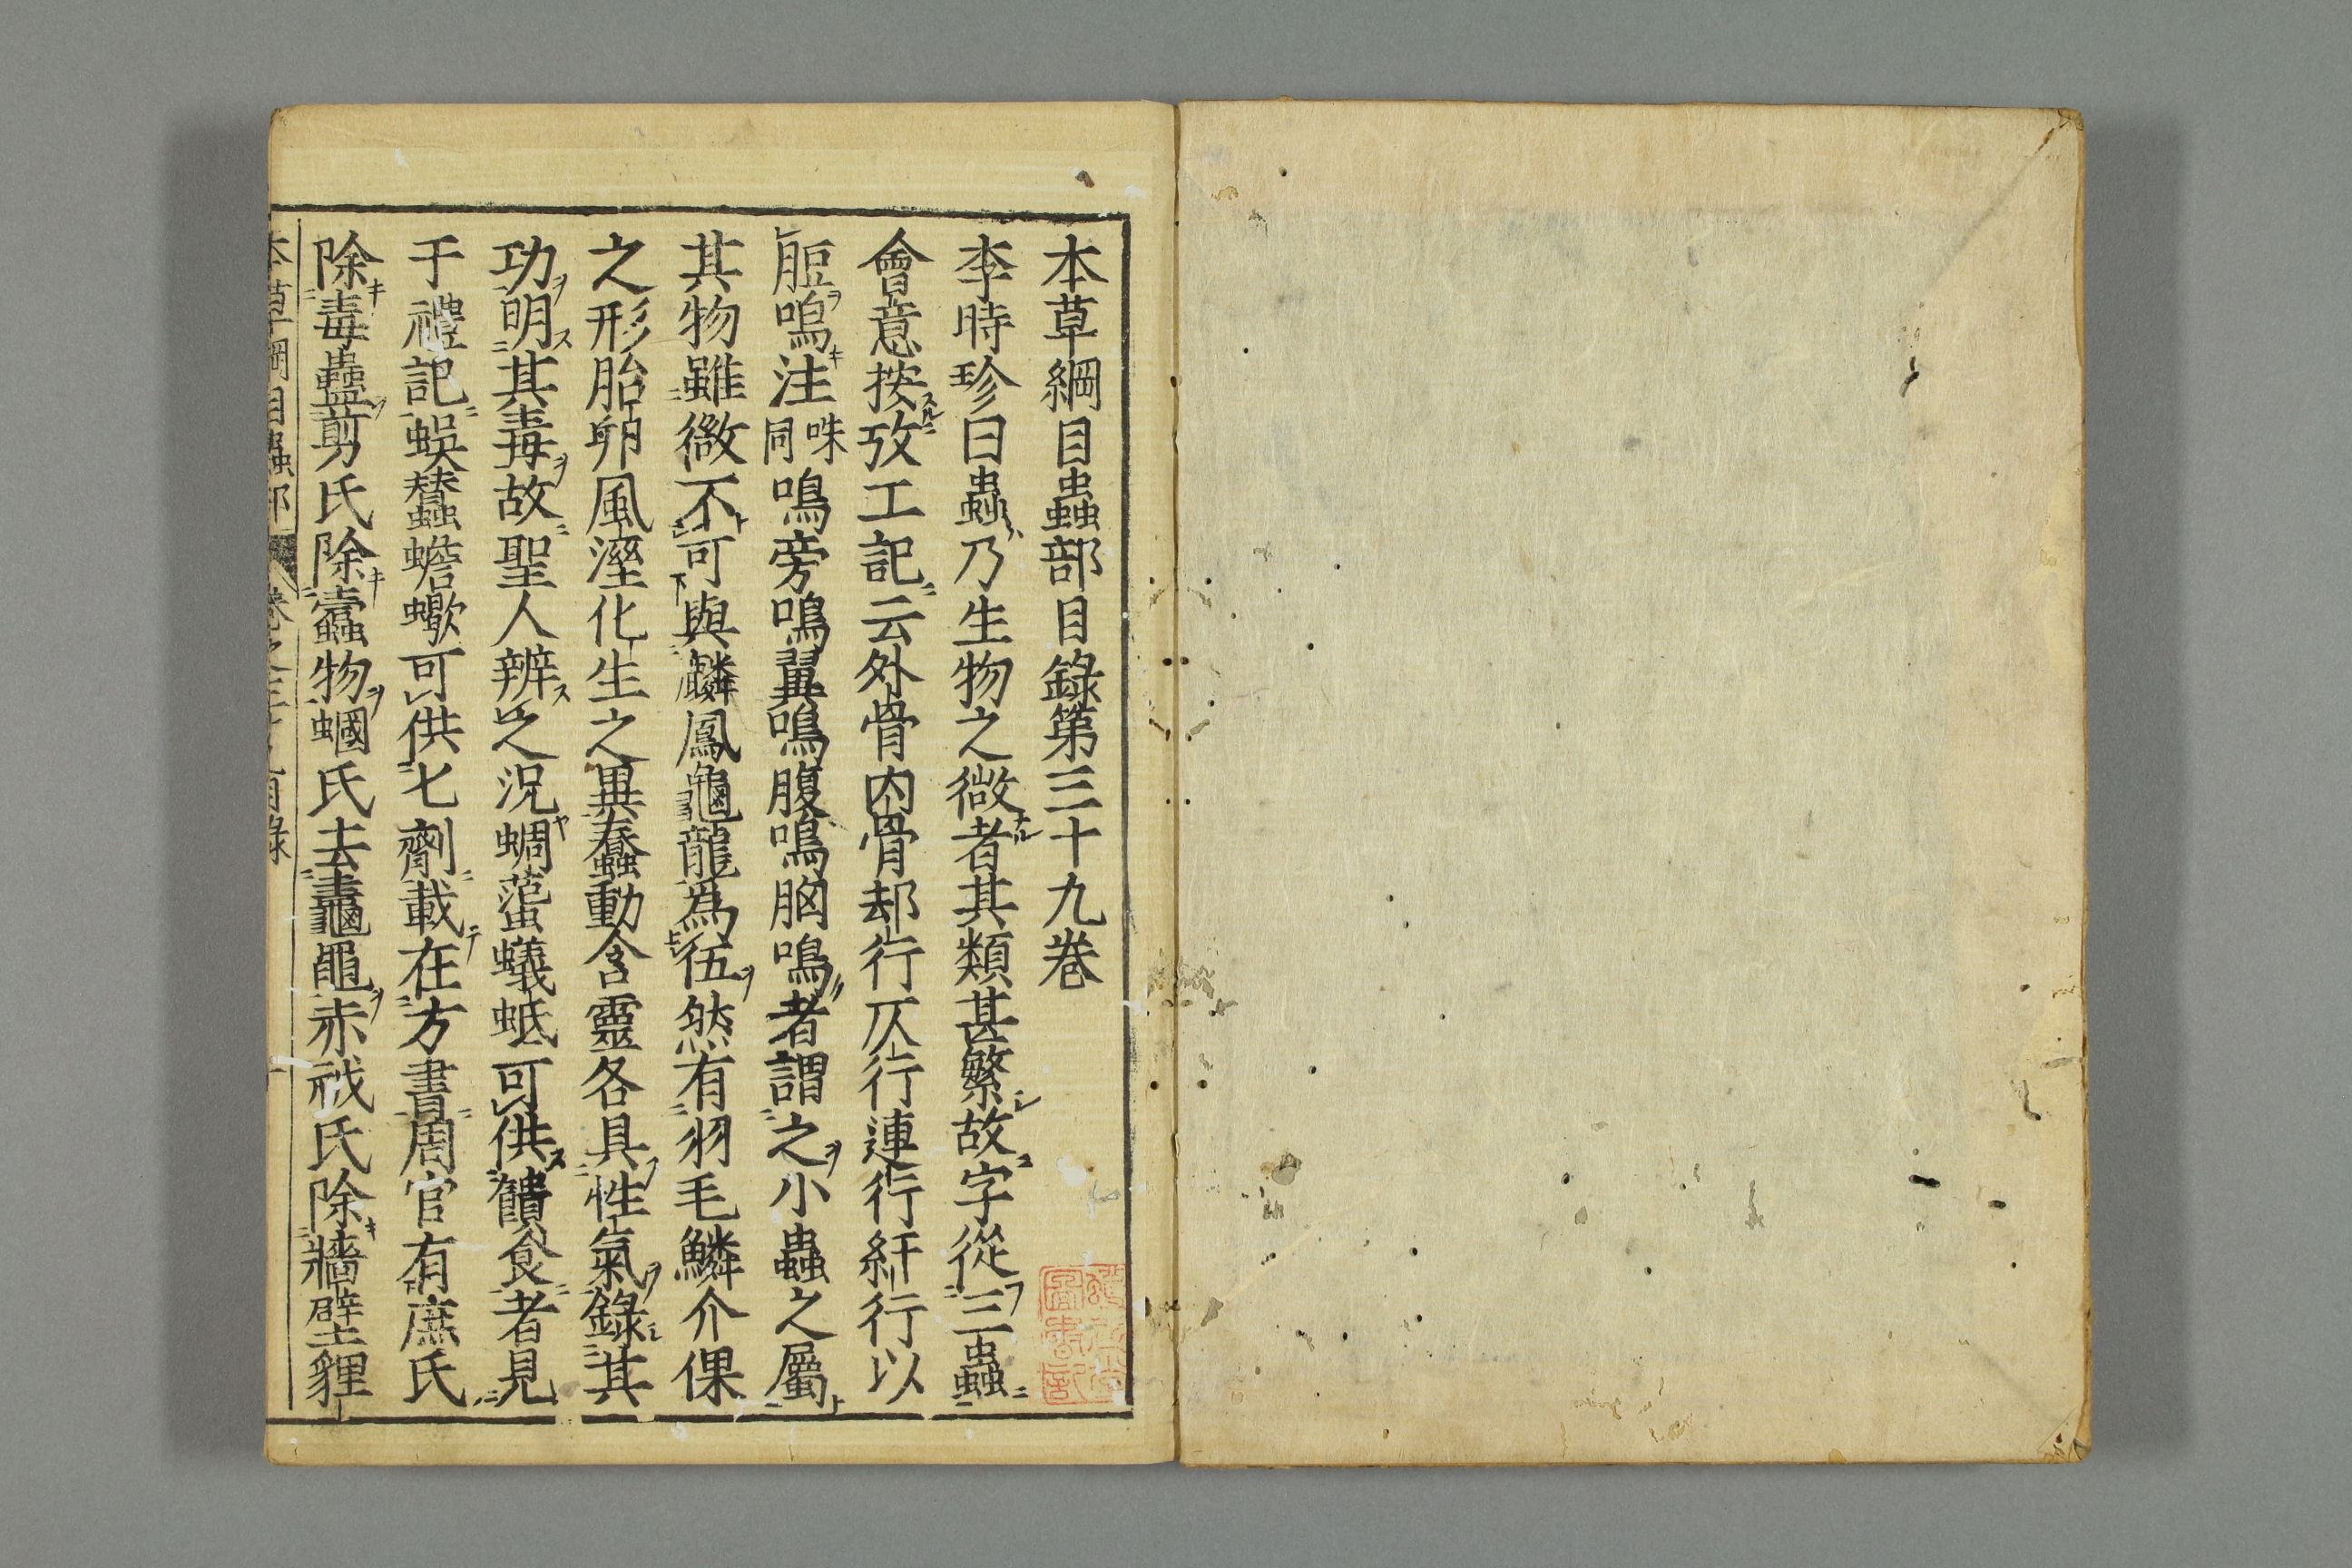 本草綱目蟲部目錄第三十九卷
李時珍曰蟲乃生物之微者其類甚繁故字從三蟲
會意按攷工記云外骨內骨却行仄行連行紆行以
脰鳴注咮同鳴旁鳴翼鳴腹鳴胸鳴者謂之小蟲之屬
其物雖微不可與麟鳳龜龍爲伍然有羽毛鱗介倮
之形胎卵風溼化生之異蠢動含靈各具性氣錄其
功明其毒故聖人辨之況蜩蝱蟻蚳可供饋食者見
于禮記蜈蠶蟾蠍可供匕劑載在方書周官有庶氏
除毒蠱剪氏除蠹物蟈氏去鼃黽赤犮氏除牆壁貍
本草綱目蟲部 卷之三十九目錄